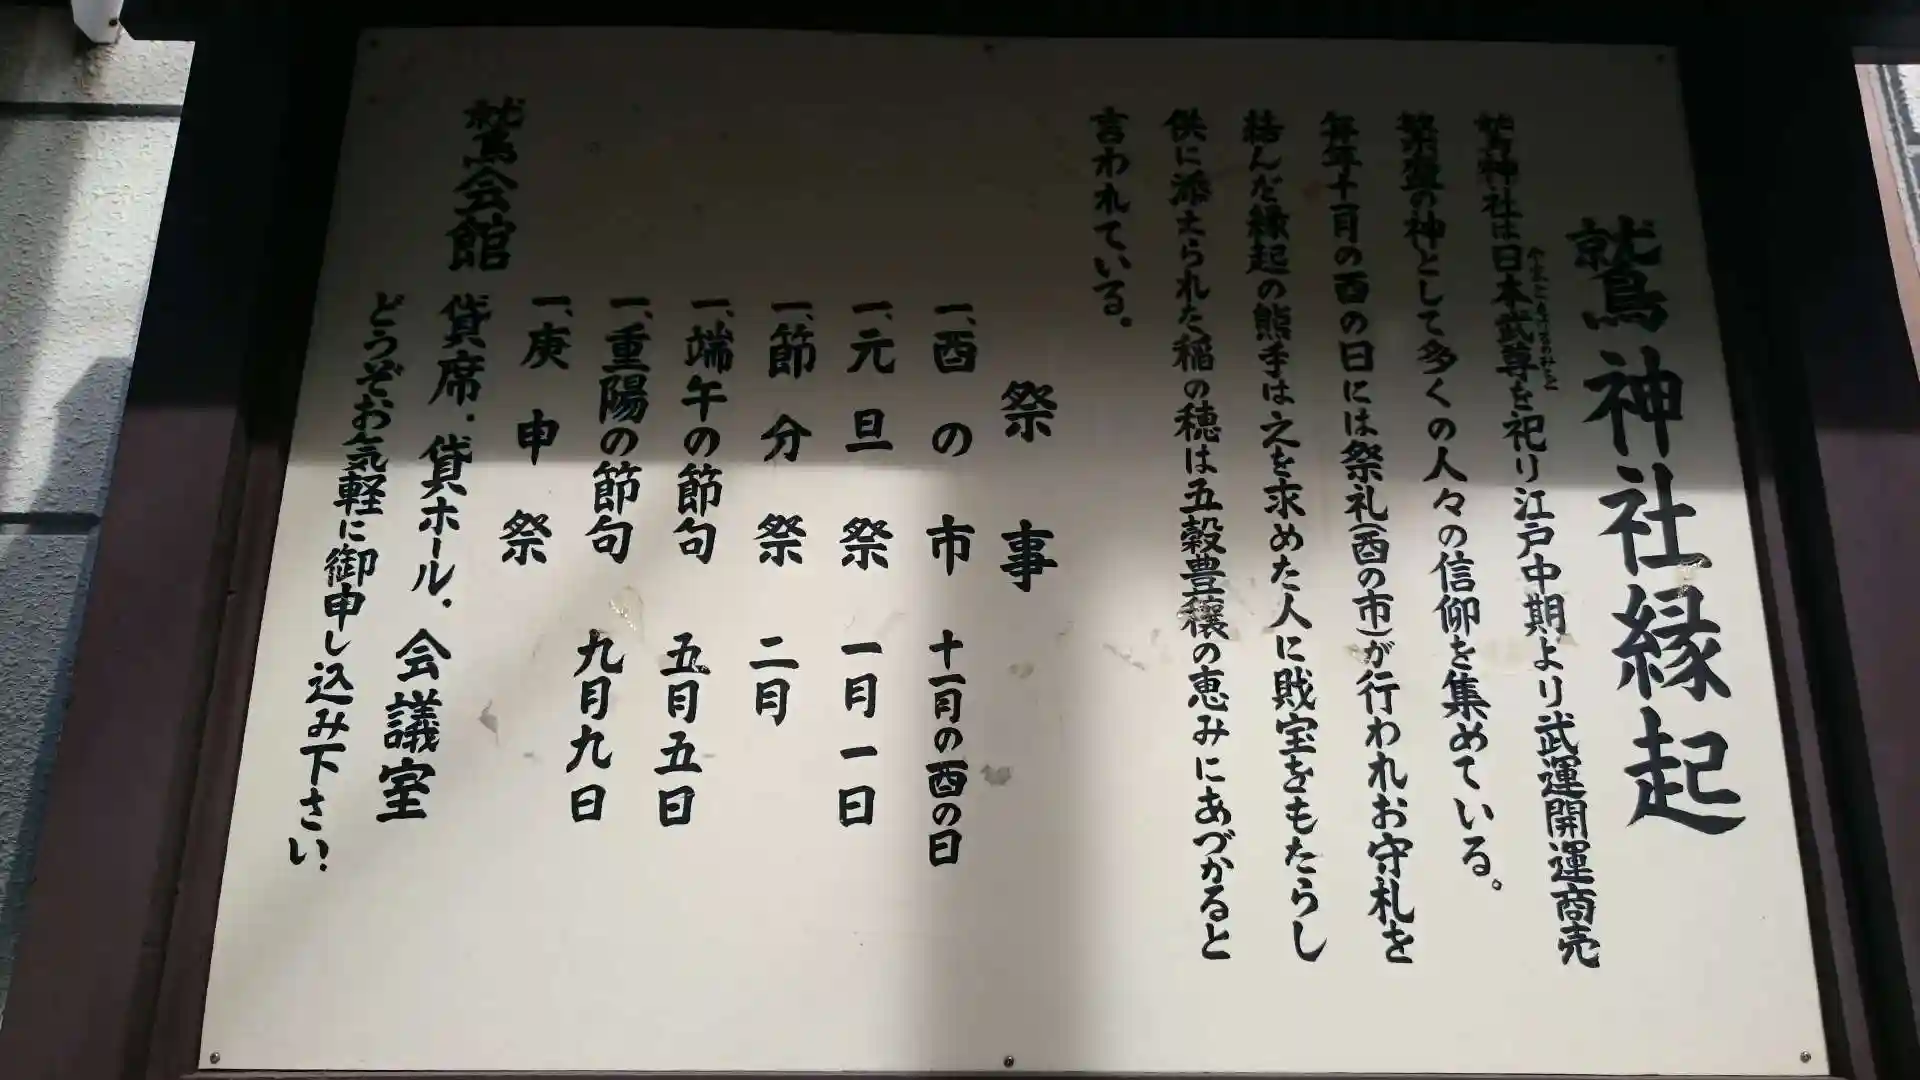 鷲神社縁起
鷲神社は日本武尊を祀り江戸中期より武運開運商売
繁盛の神として多くの人々の信仰を集めている。
毎年十一月の酉の日には祭礼(酉の市)が行われお守札を
結んだ縁起の熊手は之を求めた人に財宝をもたらし
供に添えられた稲の穂は五穀豊穣の恵みにあづかると
言われている。
祭事
一、酉の市 十一月の酉の日
一、元旦祭 一月一日
一、節分祭 二月
一、端午の節句 五月五日
一、重陽の節句 九月九日
一、庚申祭
鷲会館
貸席・貸ホール・会議室
どうぞお気軽に御申し込み下さい。